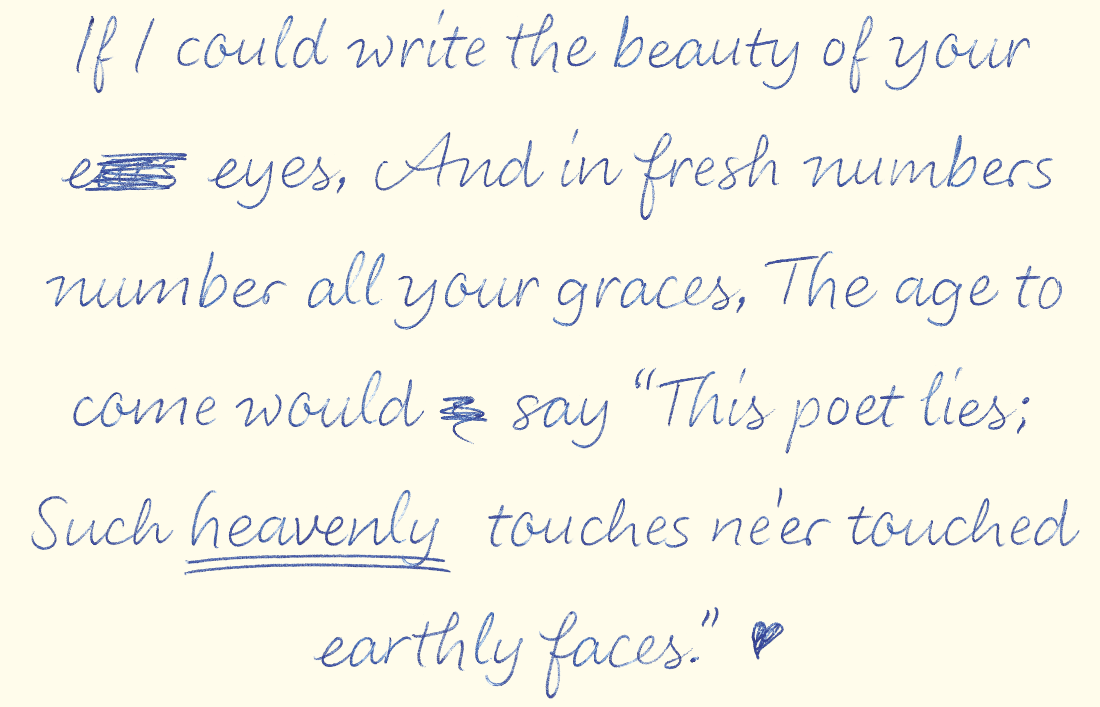 If I could write the beauty of your
eyes, And in fresh numbers
number all your graces, The age to
come would say “This poet lies;
Such heavenly touches ne'er touched
earthly faces.” ♥